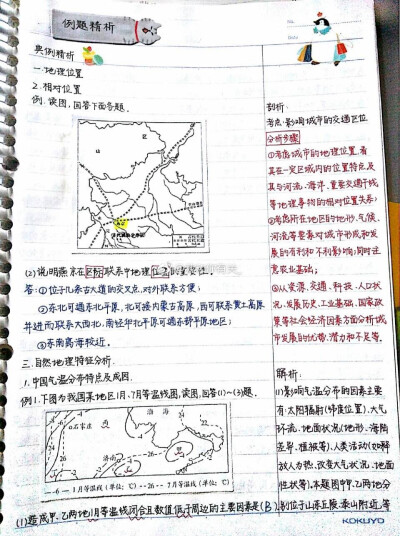 例题精析
No.
典例精析
一.地理位置
2.相对位置
例.读图,回答下面各题.
山
区
(2)说明燕京在区际联系中地理位置的重要性.
答:①位于几条古大道的交叉点,对外联系方便;
②东北可通东北平原,北可接内蒙古高原,西可联系黄土高原
并进而联系大西北,南经华北平原可通东部平原地区;
③东南离海较近.
二.自然地理特征分析.
1.中国气温分布特点及成因.
例1.下图为我国某地区1月、7月等温线图,读图,回答(1)~(3)题.
石家庄
渤
海
济南
乙
—-6— 1月等温线(单位:℃) --26-- 7月等温线(单位:℃)
(1)造成甲、乙两地1月等温线闭合且数值低于周边的主要因素是(B)
剖析:
考点:影响城市的交通区位
分析步骤
①考虑城市的地理位置,看
其在一定区域内的位置特点及
其与河流、海洋、重要交通干线
等地理事物的相对位置关系;
②考虑所在地区的地形、气候、
河流等要素对城市形成和发
展的有利和不利影响;同时注
意农业基础;
③人资源、交通、科技、人口状
况、发展历史、工业基础、国家政
策等社会经济因素方面分析城
市发展的优势、潜力和不足等.
解析:
(1)影响气温分布的因素主要
有:太阳辐射(纬度位置)、大气
环流、地面状况(地形、海陆
差异、植被等)、人类活动(如释
放人为热、改变大气状况、地面
性状等).本题图中甲、乙两地分
别位于山东丘陵、泰山附近,等
KOKUYO